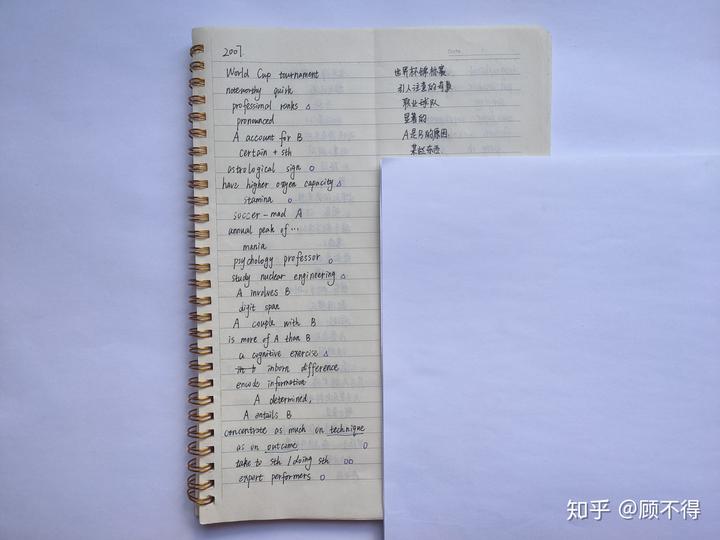 2007.
World Cup tournament 世界杯锦标赛
noteworthy quirk 引人注意的奇事
professional ranks △ 职业球队
pronounced 显著的
A account for B A是B的原因.
certain + sth 某些东西
astrological sign ○
have higher oxygen capacity △
stamina ○
soccer-mad A
annual peak of …
mania
psychology professor ○
study nuclear engineering △
A involves B
digit span
A couple with B
is more of A than B
a cognitive exercise △
inborn difference
encode information
A determined,
A entails B
concentrate as much on technique
as on outcome ○
take to sth / doing sth ○○
expert performers ○
知乎 @顾不得